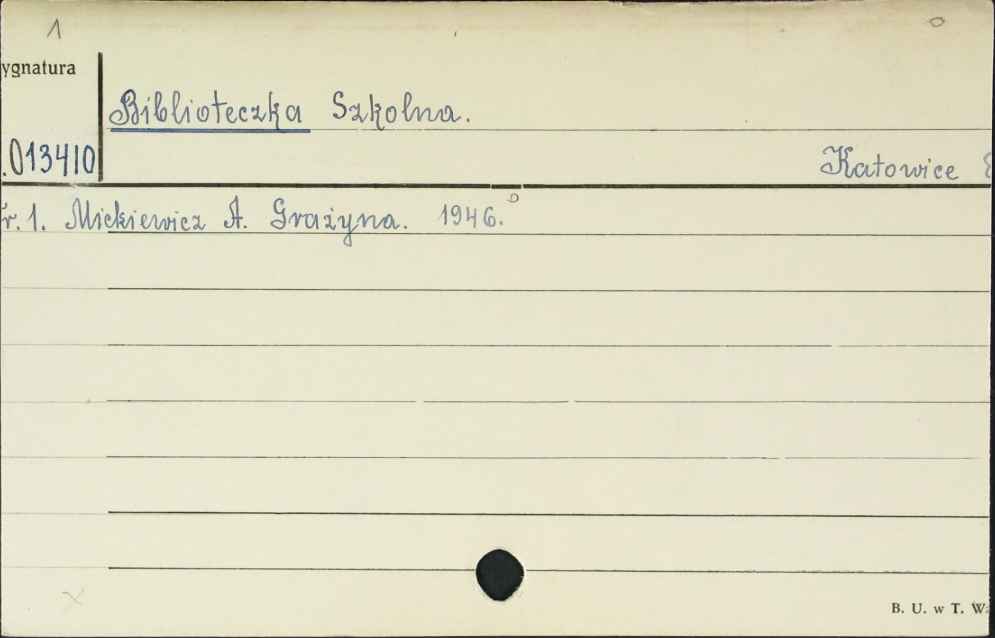 1
ygnatura
Biblioteczka Szkolna.
.013410
Katowice
r. 1. Mickiewicz A. Grażyna. 1946.
B. U. w T. W